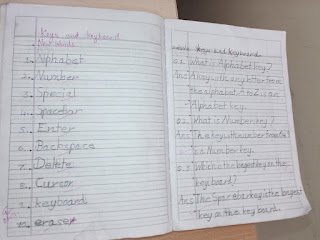 Keys and keyboard
New words
1. Alphabet
2. Number
3. Special
4. Spacebar
5. Enter
6. Backspace
7. Delete
8. Cursor
9. keyboard
10. eraser
keys and keyboard
Q.1. What is Alphabet key?
Ans A key with any letter from
the alphabet A to Z is an
Alphabet key.
Q.2. What is Number key?
Ans The key with number from
is Number key.
Q.3 Which is the longest key on the
keyboard?
Ans The Spacebar key is the longest
key on the key board.